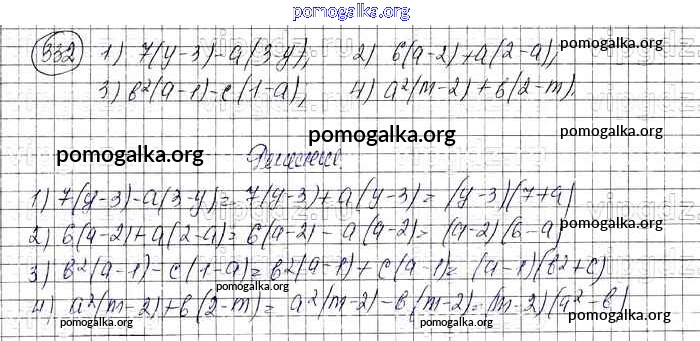 pomogalka.org
332 1) 7(y-3)-a(3-y); 2) 6(a-2)+a(2-a);
pomogalka.org
3) b²(a-1)-c(1-a); 4) a²(m-2)+b(2-m).
pomogalka.org
pomogalka.org
pomogalka.org
Решение.
1) 7(y-3)-a(3-y)=7(y-3)+a(y-3)=(y-3)(7+a)
pomogalka.org
2) 6(a-2)+a(2-a)=6(a-2)-a(a-2)=(a-2)(6-a)
3) b²(a-1)-c(1-a)=b²(a-1)+c(a-1)=(a-1)(b²+c)
pomogalka.org
4) a²(m-2)+b(2-m)=a²(m-2)-b(m-2)=(m-2)(a²-b)
pomogalka.org
pomogalka.org
pomogalka.org